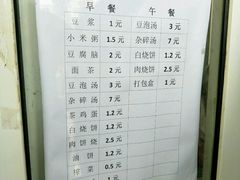 早 餐 午 餐
豆 浆 1 元 豆泡汤 3 元
小米粥 1.5 元 杂碎汤 7 元
豆腐脑 2 元 白烧饼 1.2 元
面 茶 2 元 肉烧饼 2.5 元
豆泡汤 3 元 打包盒 1 元
杂碎汤 7 元
茶鸡蛋 1.2 元
白烧饼 1.2 元
肉烧饼 2.5 元
油 饼 1.2 元
榨 菜 0.5 元
1 元